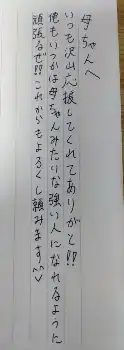 母ちゃんへ
いつも沢山応援してくれてありがと!!
俺もいつかは母ちゃんみたいな強い人になれるように
頑張るぜ!!これからもよろしく頼みます^^♡